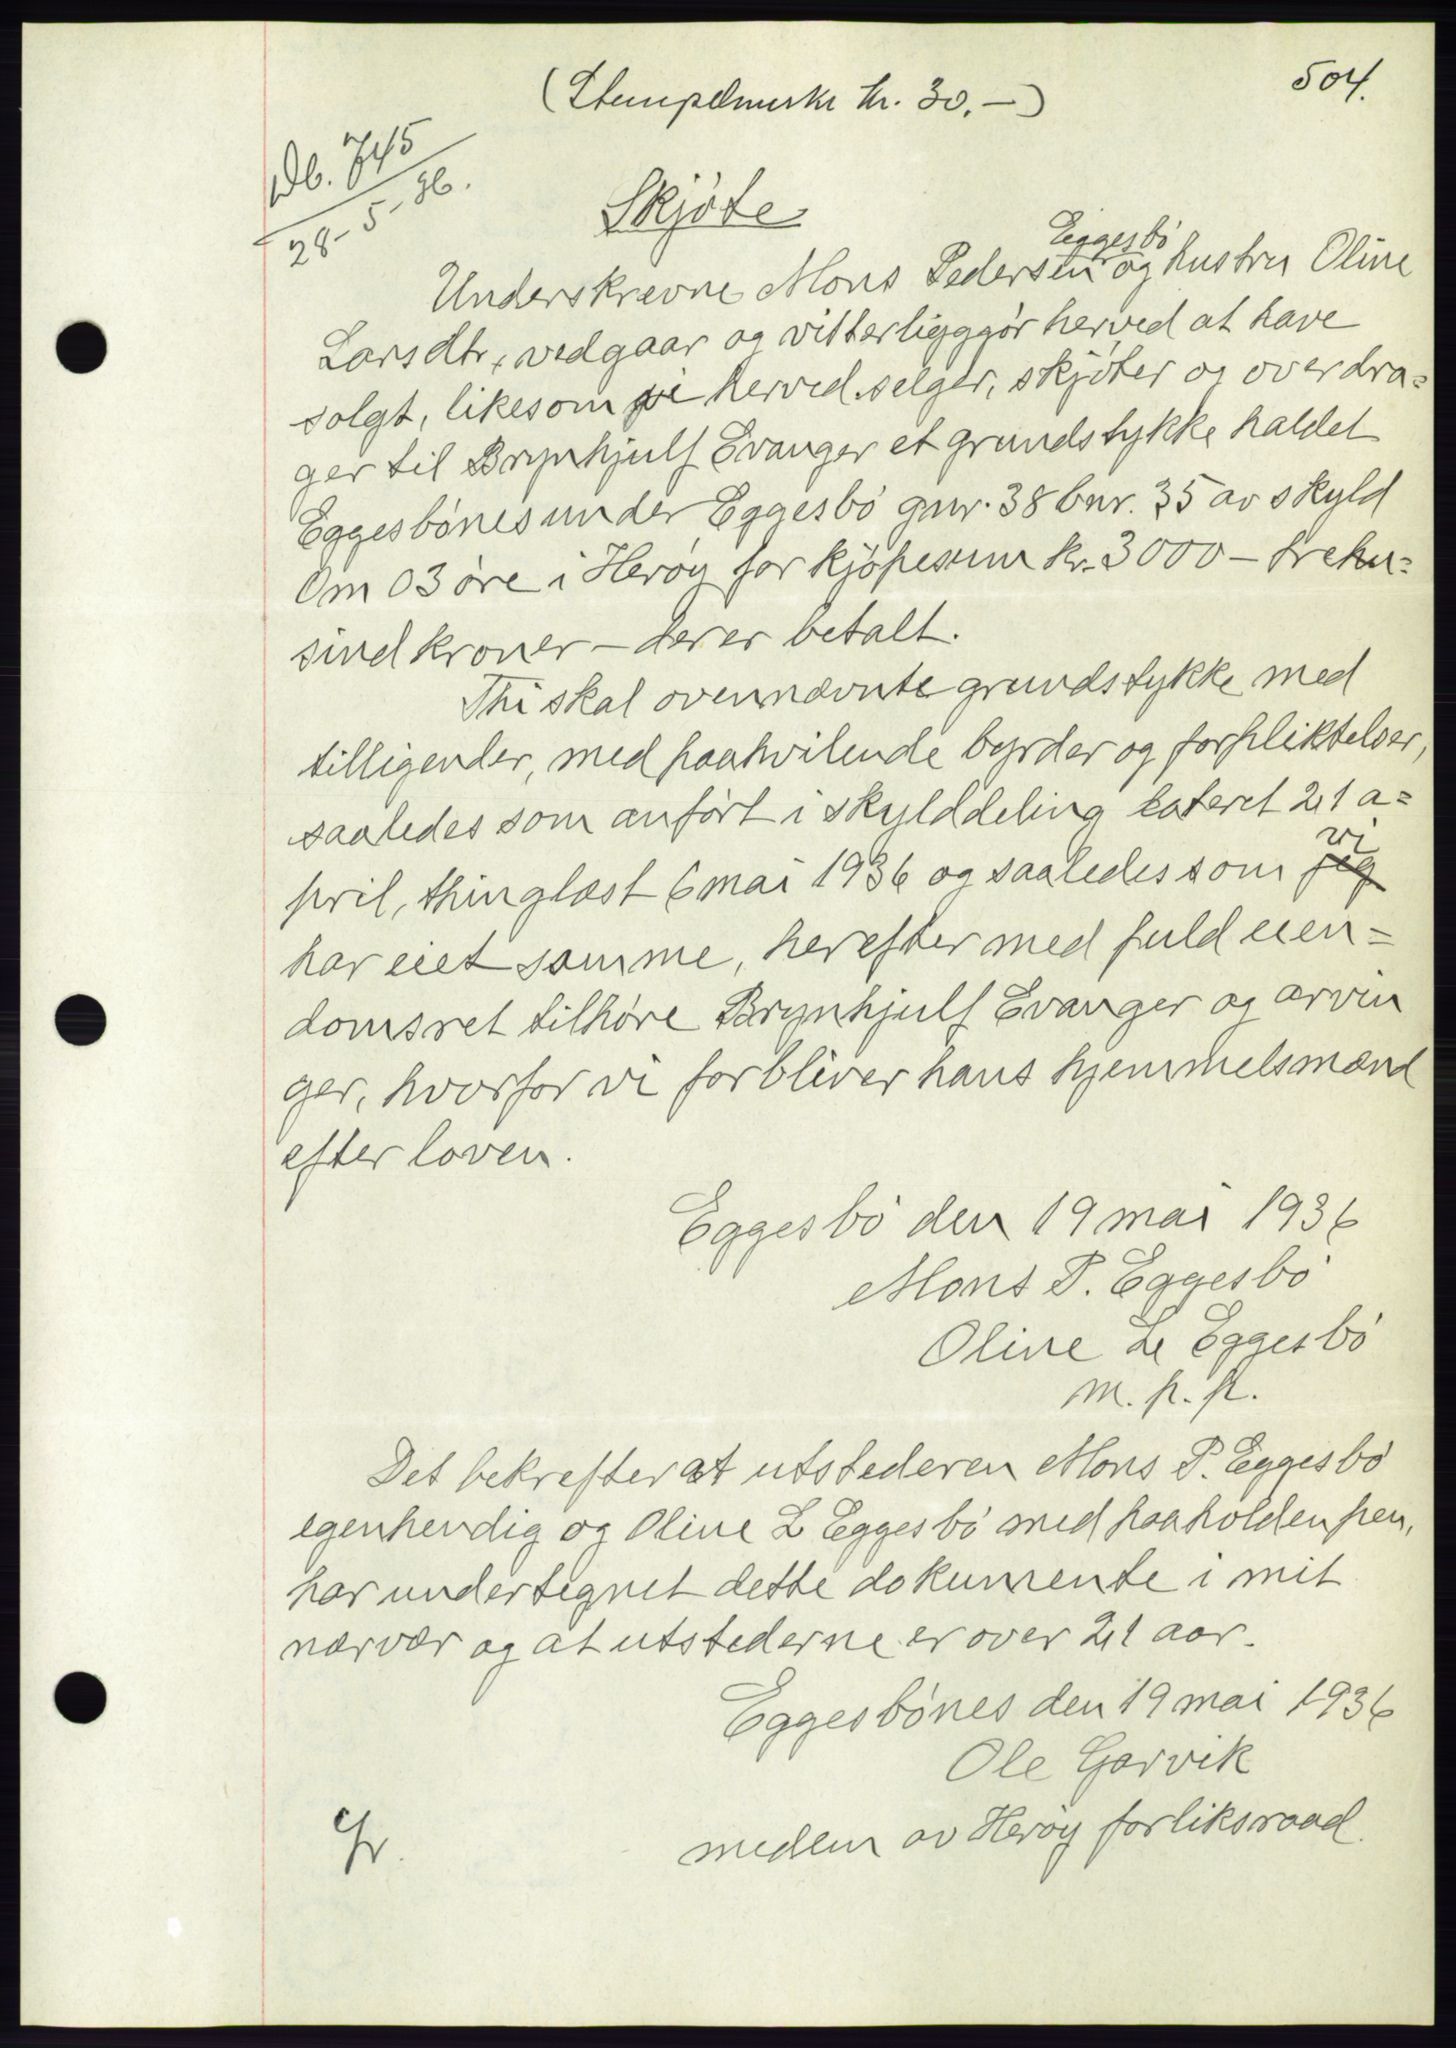 504.
(Stempelmerke kr. 30.—)
Db. 745
28-5-36.
Skjøte
Eggesbø
Underskrevne Mons Pedersen og hustru Oline
Larsdtr, vedgaar og vitterliggjør herved at have
solgt, likesom vi herved selger, skjøter og overdra=
ger til Brynhjulf Evanger et grundstykke kaldet
Eggesbønes under Eggesbø gnr. 38 bnr. 35 av skyld
Om 03 øre i Herøy for kjøpesum kr. 3000 – tretu=
sind kroner – der er betalt.
Thi skal ovennævnte grundstykke med
tilligender, med paahvilende byrder og forpliktelser,
saaledes som anført i skylddeling dateret 21 a=
vi
pril, thinglæst 6 mai 1936 og saaledes som jeg
har eiet samme, herefter med fuld eien=
domsret tilhøre Brynhjulf Evanger og arvin
ger, hvorfor vi forbliver hans hjemmelsmænd
efter loven.
Eggesbø den 19 mai 1936
Mons P. Eggesbø
Oline L Eggesbø
m. p. p.
Det bekreftes at utstederen Mons P. Eggesbø
egenhendig og Oline L Eggesbø med paaholden pen,
har undertegnet dette dokumente i mit
nærvær og at utstederne er over 21 aar.
Eggesbønes den 19 mai 1936
Ole Garvik
medlem av Herøy forliksraad.